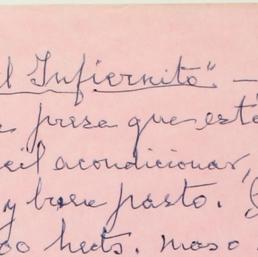 el Infiernito". —
presa que esté
acondicionar,
y buen pasto.
00 hects. maso